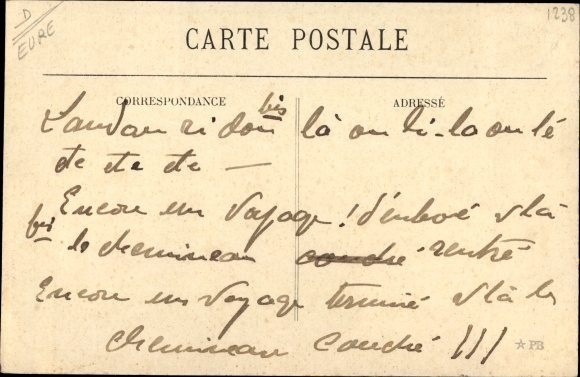 D
EURE
1238
CARTE POSTALE
CORRESPONDANCE
ADRESSÉ
bis
Landau ri don là ou li-la ou lé
etc etc etc —
Encore un Voyage! v'là
bis le chemineau couché rentré
Encore un Voyage terminé v'là le
chemineau couché !!!
PB